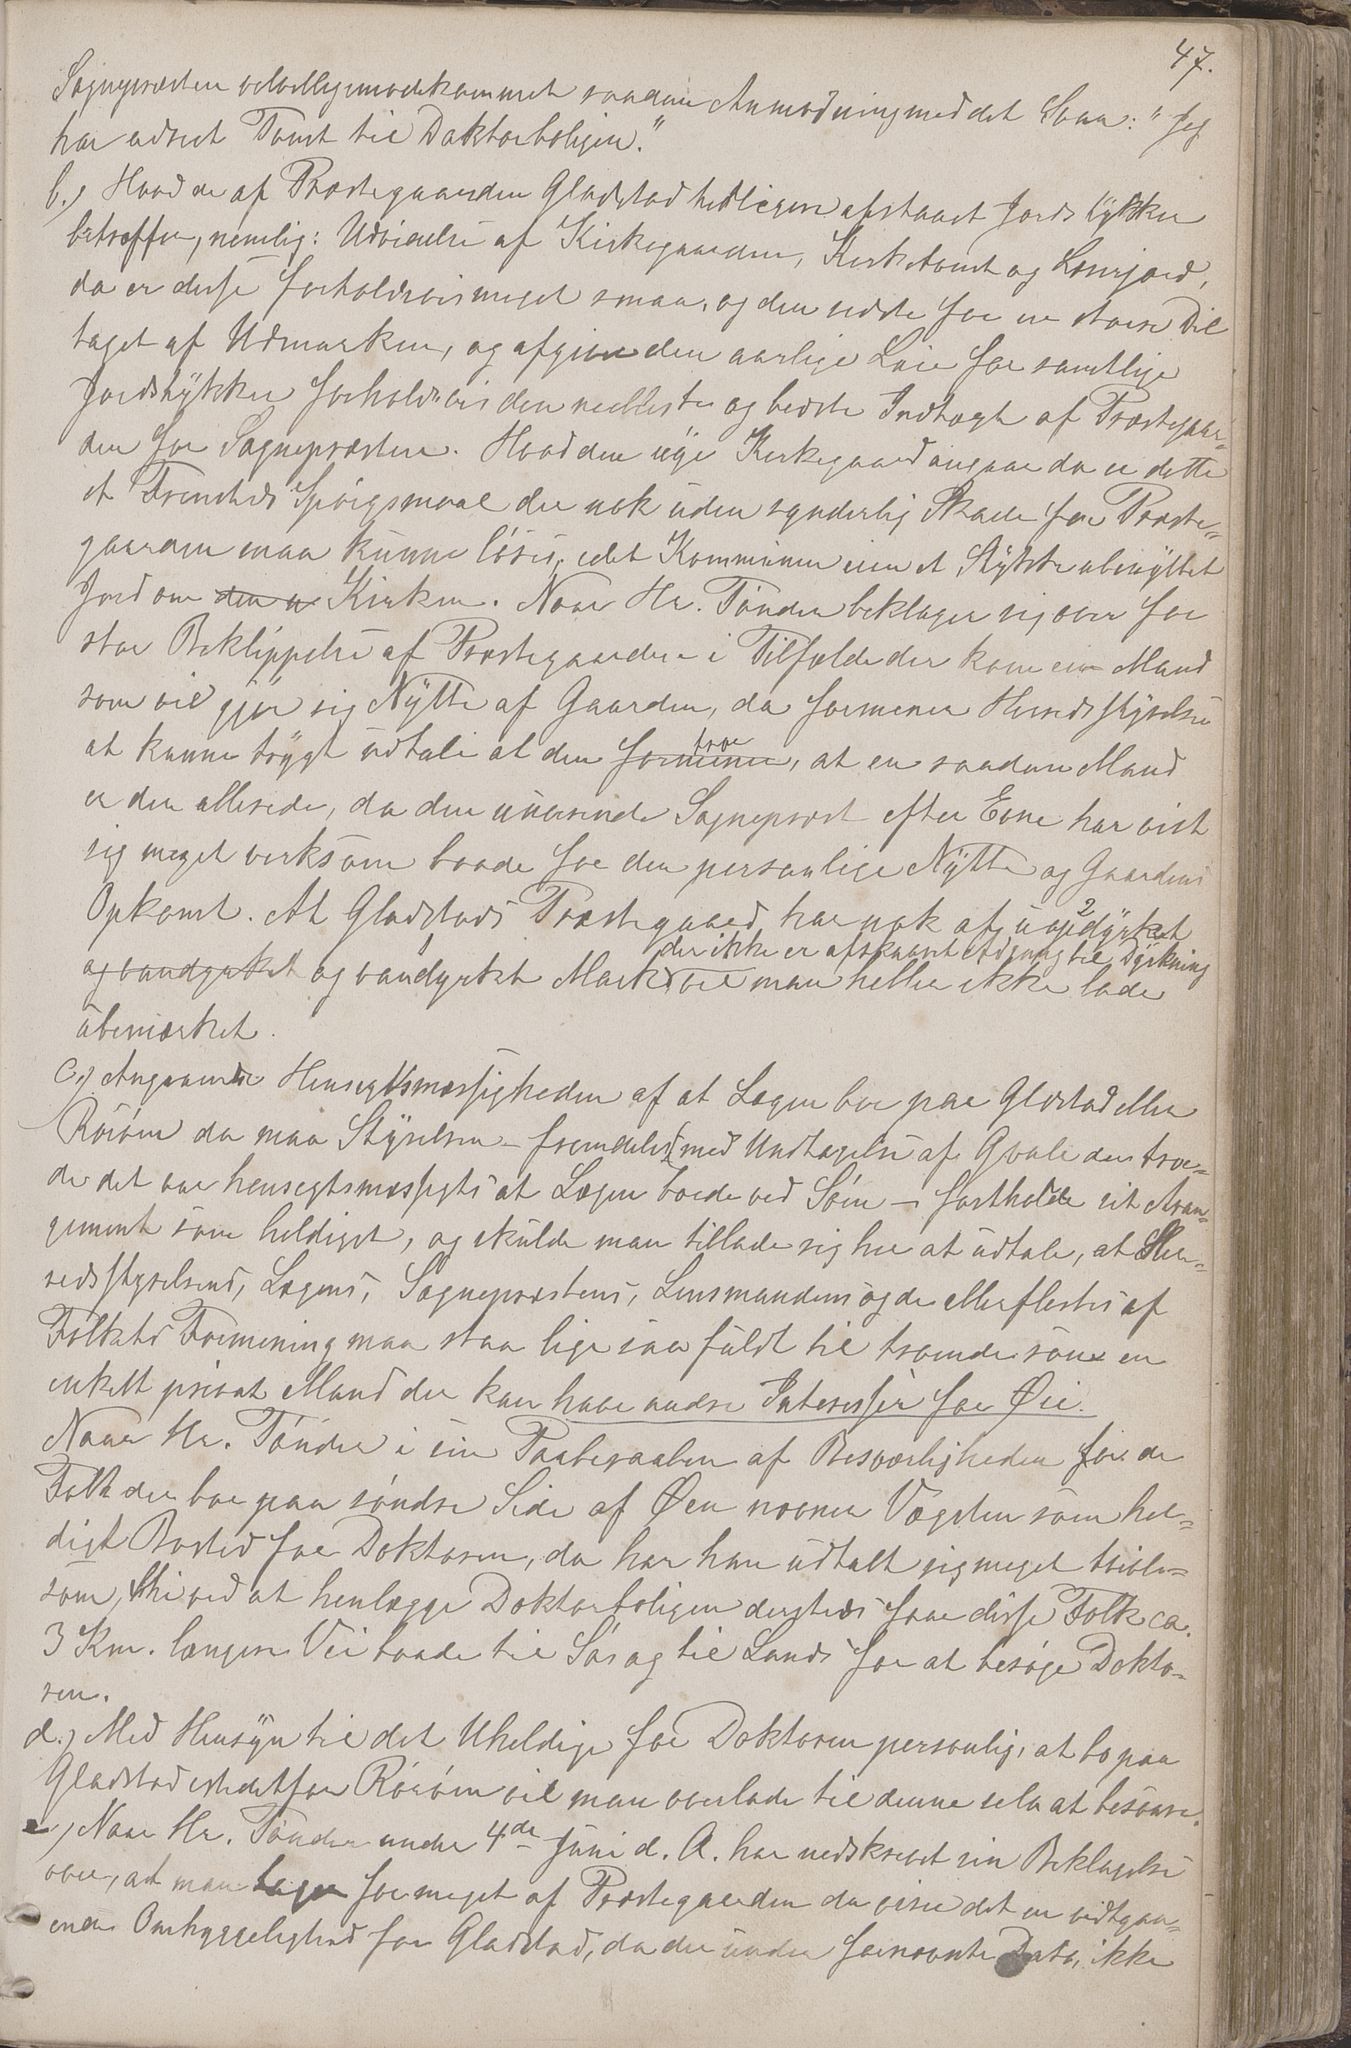 47.
Sognepræsten velvilligimødekommet saadan Anmodning med det Svar: "Jeg
har udseet Tomt til Doktorboligen."
b.) Hvad de af Præstegaarden Gladstad tidligere afstaaet Jordstykker
betræffer, nemlig: Udvidelse af Kirkegaarden, Kirketomt og Lærerjord,
da er disse forholdsvis meget smaa, og den sidste for en stor Del
taget af Udmarken, og afgiver den aarlige Leie for samtlige
Jordstykker forholdsvis den netteste og bedste Indtægt af Præstegaar-
den for Sognepræsten. Hvad den nye Kirkegaard angaar da er dette
et Fremtids Spørgsmaal der nok uden synderlig Skade for Præste-
gaarden maa kunne løses, idet Kommunen eier et Stykke ubenyttet
Jord om den n Kirken. Naar Hr. Tønder beklager sig over for
stor Beklippelse af Præstegaarden i Tilfælde der kom en Mand
som vil gjør sig Nytte af Gaarden, da formener Herredsstyrelsen
at kunne trygt udtale at den formener tror, at en saadan Mand
er der allerede, da den nuværende Sognepræst efter Evne har vist
sig meget verksom baade for den personlige Nytte og Gaardens
Opkomst. At Gladstads Præstegaard har nok af uopdyrket
og vandyrket og vandyrket Mark der ikke er afskaaret Adgang til Dyrkning vil man heller ikke lade
ubemærket.
c.) Angaaende Hensigtsmæssigheden af at Lægen bor paa Gladstad eller
Rørøen da maa Styrelsen – fremdeles (med Undtagelse af Qvale der tro-
de det var hensigtsmæssigts at Lægen boede ved Søen – fastholde sit Aran-
gement som heldigst, og skulde man tillade sig her at udtale, at Her-
redsstyrelsens, Lægens, Sognepræstens, Lensmandens og de allerflestes af
Folkets Formening maa staa lige saa fuldt til troende som en
enkelt privat Mand der kan have andre Interesser for Øie.
Naar Hr. Tønder i sin Paaberaaben af Besværligheden for de
Folk der bor paa søndre Side af Øen nævner Vægsten som hel-
digt Bosted for Doktoren, da har han udtalt sig meget tvivl-
som, thi ved at henlægge Doktorboligen dersteds faar disse Folk ca.
3 Km. længere Vei baade til Søs og til Lands for at besøge Dokto-
ren.
d.) Med Hensyn til det Uheldige for Doktoren personlig, at bo paa
Gladstad istedetfor Rørøen vil man overlade til denne selv at besvare.
e) Naar Hr. Tønder under 4de Juni d. A. har nedskrevet sin Beklagelse
over, at man tager for meget af Præstegaarden da viser det en vidtgaa-
ende Omhyggelighed for Gladstad, da der under fornævnte Dato, ikke